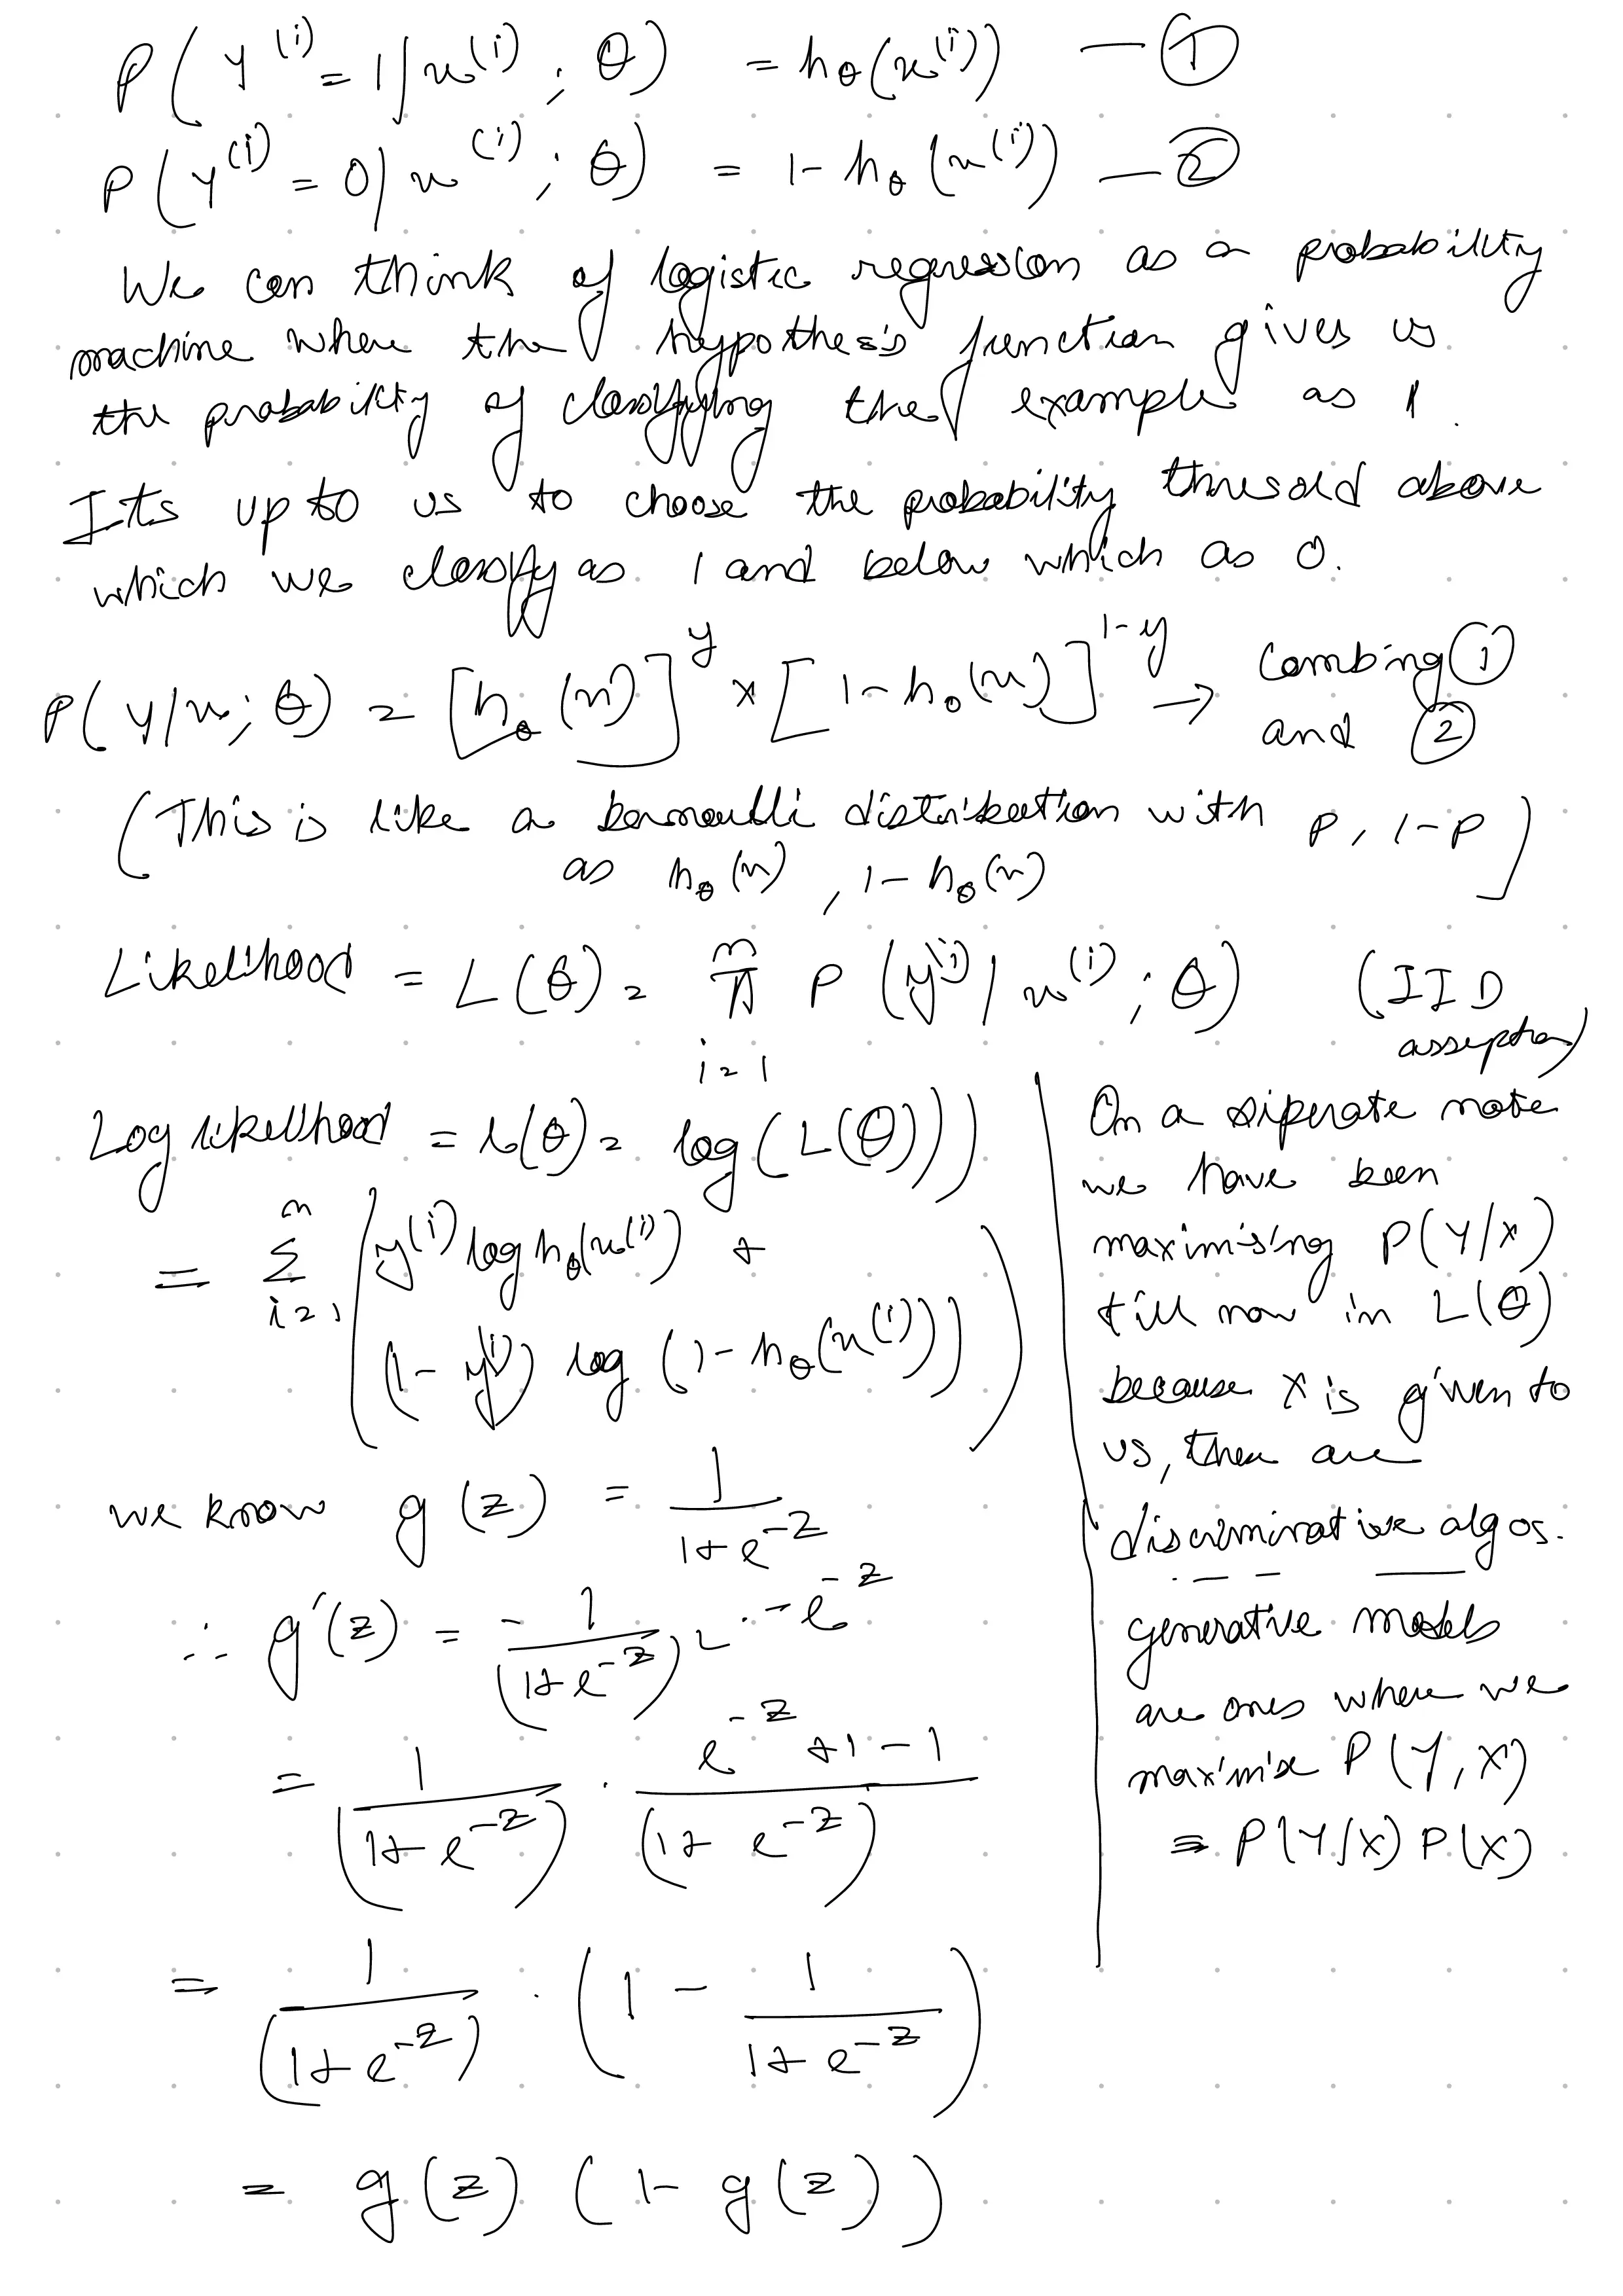 P(y⁽ⁱ⁾ = 1/x⁽ⁱ⁾; θ) = hθ(x⁽ⁱ⁾) — ①
P(y⁽ⁱ⁾ = 0/x⁽ⁱ⁾; θ) = 1 - hθ(x⁽ⁱ⁾) — ②
We can think of logistic regression as a probability
machine where the hypothesis function gives us
the probability of classifying the example as 1.
Its up to us to choose the probability thresold above
which we classify as 1 and below which as 0.
P(y/x; θ) = [hθ(x)]^y × [1 - hθ(x)]^(1-y) → combing ①
and ②
(This is like a bernoulli distribution with p, 1-p)
as hθ(x), 1 - hθ(x)
Likelihood = L(θ) = π_{i=1}^{m} P(y⁽ⁱ⁾/x⁽ⁱ⁾; θ) (IID
assuption)
Log likelihood = l(θ) = log(L(θ)))
= Σ_{i=1}^{m} (y⁽ⁱ⁾ log hθ(x⁽ⁱ⁾) +
(1 - y⁽ⁱ⁾) log (1 - hθ(x⁽ⁱ⁾)))
we know g(z) = 1/(1+e^-z)
∴ g'(z) = -1/(1+e^-z)² . -e^-z
= 1/(1+e^-z) . (e^-z +1-1)/(1+e^-z)
= 1/(1+e^-z) . (1 - 1/(1+e^-z))
= g(z) (1- g(z))
On a siperate note
we have been
maximising P(Y/X)
till now in L(θ)
because X is given to
us, these are
discriminative algos.
generative models
are ones where we
maximise P(Y,X)
= P(Y/X) P(X)